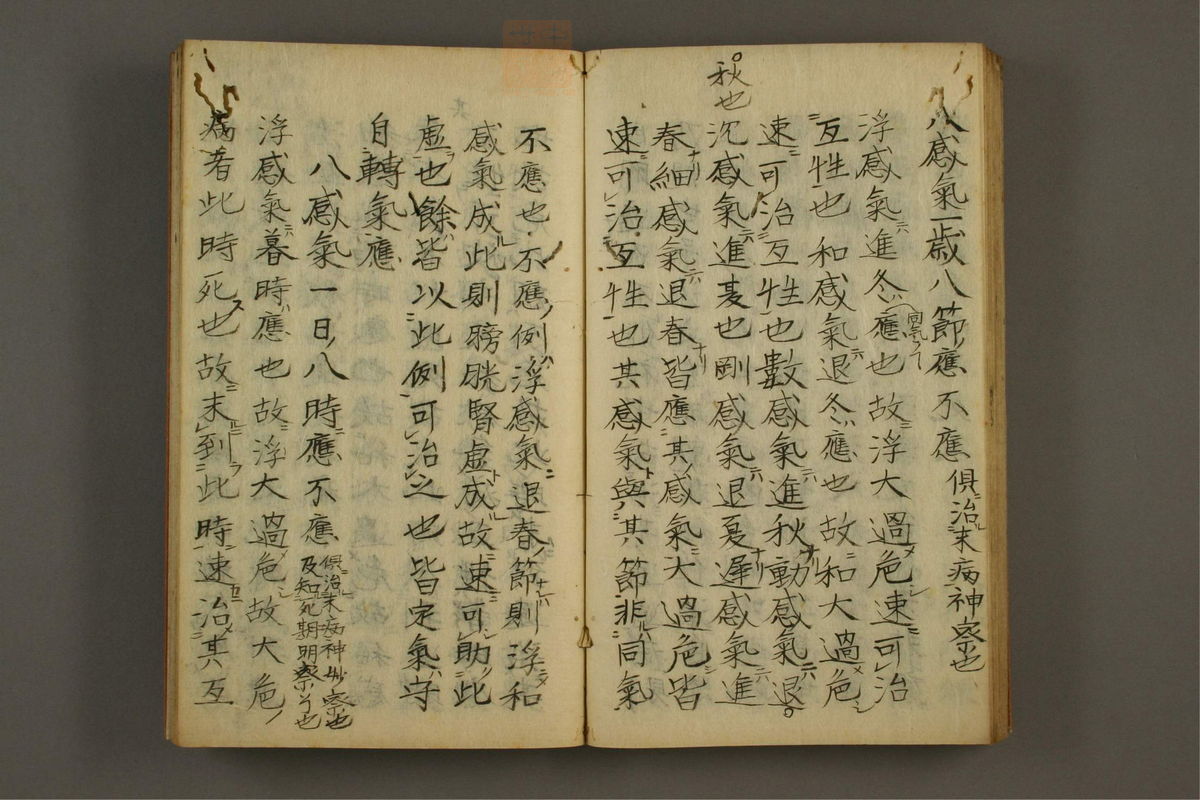 八感氣一歳八節應不應 俱治未病神察也
浮感氣進冬應也故浮大過危速可治
同氣
互性也和感氣退冬應也故和大過危
速可治互性也數感氣進秋動感氣退
秋也
沉感氣進夏也剛感氣退夏遲感氣進
春細感氣退春皆應其感氣大過危皆
速可治互性也其感氣與其節非同氣
不應也不應例浮感氣退春節則浮和
感氣成此則膀胱腎虛成故速可助此
虛也餘皆以此例可治之也皆定氣守
自轉氣應
八感氣一日八時應不應
俱治未病神妙察也
及知死期明察也
浮感氣暮時應也故浮大過危故大危
病者此時死也故未到此時速治其互